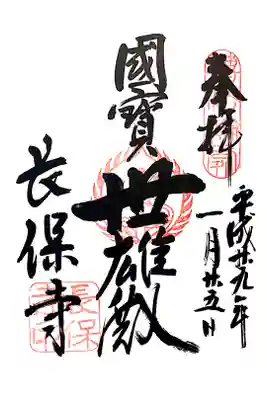 奉拝
平成廿九年
一月廿五日
國寶
世雄殿
長保寺